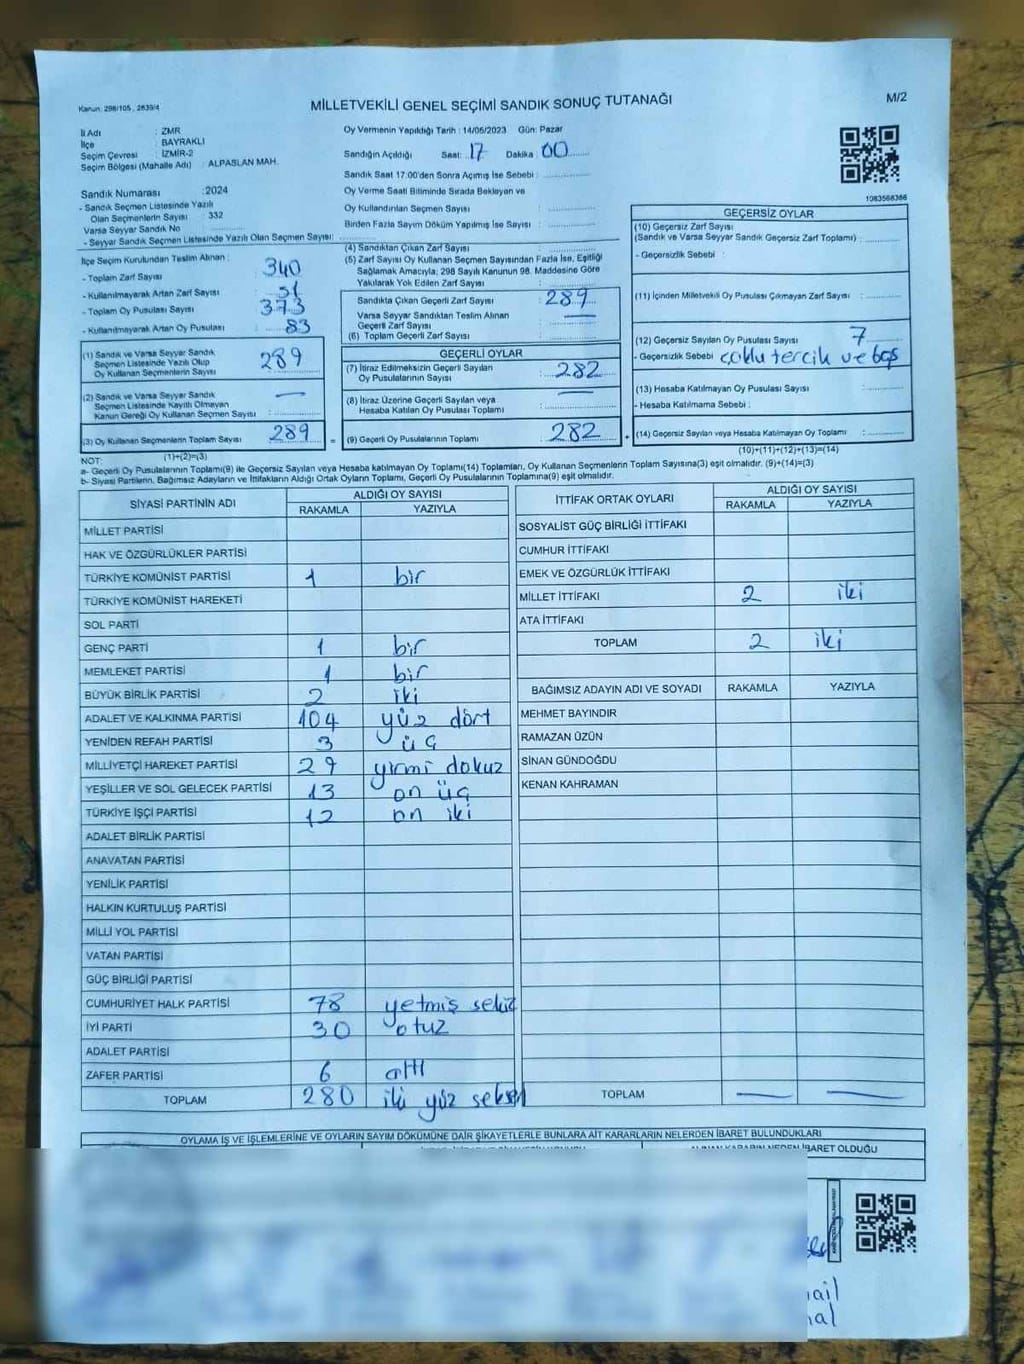 Kanun: 298/105, 2839/4
MİLLETVEKİLİ GENEL SEÇİMİ SANDIK SONUÇ TUTANAĞI
M/2
İl Adı : ZMR
İlçe : BAYRAKLI
Seçim Çevresi : İZMİR-2
Seçim Bölgesi (Mahalle Adı) : ALPASLAN MAH.
Sandık Numarası : 2024
- Sandık Seçmen Listesinde Yazılı
Olan Seçmenlerin Sayısı : 332
Varsa Seyyar Sandık No :
- Seyyar Sandık Seçmen Listesinde Yazılı Olan Seçmen Sayısı:
Oy Vermenin Yapıldığı Tarih : 14/05/2023 Gün: Pazar
Sandığın Açıldığı Saat: 17 Dakika : 00
Sandık Saat 17:00'den Sonra Açmış İse Sebebi :
Oy Verme Saati Bitiminde Sırada Bekleyen ve
Oy Kullandırılan Seçmen Sayısı :
Birden Fazla Sayım Döküm Yapılmış İse Sayısı :
1083568386
İlçe Seçim Kurulundan Teslim Alınan :
- Toplam Zarf Sayısı : 340
- Kullanılmayarak Artan Zarf Sayısı : 51
- Toplam Oy Pusulası Sayısı : 373
- Kullanılmayarak Artan Oy Pusulası : 83
(1) Sandık ve Varsa Seyyar Sandık
Seçmen Listesinde Yazılı Olup
Oy Kullanan Seçmenlerin Sayısı : 289
(2) Sandık ve Varsa Seyyar Sandık
Seçmen Listesinde Kayıtlı Olmayan
Kanun Gereği Oy Kullanan Seçmen Sayısı : —
(3) Oy Kullanan Seçmenlerin Toplam Sayısı : 289 =
(1)+(2)=(3)
(4) Sandıktan Çıkan Zarf Sayısı :
(5) Zarf Sayısı Oy Kullanan Seçmen Sayısından Fazla İse, Eşitliği
Sağlamak Amacıyla; 298 Sayılı Kanunun 98. Maddesine Göre
Yakılarak Yok Edilen Zarf Sayısı :
Sandıkta Çıkan Geçerli Zarf Sayısı : 289
Varsa Seyyar Sandıktan Teslim Alınan
Geçerli Zarf Sayısı : —
(6) Toplam Geçerli Zarf Sayısı :
GEÇERLİ OYLAR
(7) İtiraz Edilmeksizin Geçerli Sayılan
Oy Pusulalarının Sayısı : 282
(8) İtiraz Üzerine Geçerli Sayılan veya
Hesaba Katılan Oy Pusulası Toplamı : —
(9) Geçerli Oy Pusulalarının Toplamı : 282 +
GEÇERSİZ OYLAR
(10) Geçersiz Zarf Sayısı
(Sandık ve Varsa Seyyar Sandık Geçersiz Zarf Toplamı) :
- Geçersizlik Sebebi :
(11) İçinden Milletvekili Oy Pusulası Çıkmayan Zarf Sayısı :
(12) Geçersiz Sayılan Oy Pusulası Sayısı : 7
- Geçersizlik Sebebi : çoklu tercik ve boş
(13) Hesaba Katılmayan Oy Pusulası Sayısı :
- Hesaba Katılmama Sebebi :
(14) Geçersiz Sayılan veya Hesaba Katılmayan Oy Toplamı :
(10)+(11)+(12)+(13)=(14)
NOT:
a- Geçerli Oy Pusulalarının Toplamı(9) ile Geçersiz Sayılan veya Hesaba katılmayan Oy Toplamı(14) Toplamları, Oy Kullanan Seçmenlerin Toplam Sayısına(3) eşit olmalıdır. (9)+(14)=(3)
b- Siyasi Partilerin, Bağımsız Adayların ve İttifakların Aldığı Oyların Toplamı, Geçerli Oy Pusulalarının Toplamına(9) eşit olmalıdır.
SİYASİ PARTİNİN ADI ALDIĞI OY SAYISI
RAKAMLA YAZIYLA
MİLLET PARTİSİ
HAK VE ÖZGÜRLÜKLER PARTİSİ
TÜRKİYE KOMÜNİST PARTİSİ 1 bir
TÜRKİYE KOMÜNİST HAREKETİ
SOL PARTİ
GENÇ PARTİ 1 bir
MEMLEKET PARTİSİ 1 bir
BÜYÜK BİRLİK PARTİSİ 2 iki
ADALET VE KALKINMA PARTİSİ 104 yüz dört
YENİDEN REFAH PARTİSİ 3 üç
MİLLİYETÇİ HAREKET PARTİSİ 29 yirmi dokuz
YEŞİLLER VE SOL GELECEK PARTİSİ 13 on üç
TÜRKİYE İŞÇİ PARTİSİ 12 on iki
ADALET BİRLİK PARTİSİ
ANAVATAN PARTİSİ
YENİLİK PARTİSİ
HALKIN KURTULUŞ PARTİSİ
MİLLİ YOL PARTİSİ
VATAN PARTİSİ
GÜÇ BİRLİĞİ PARTİSİ
CUMHURİYET HALK PARTİSİ 78 yetmiş sekiz
İYİ PARTİ 30 otuz
ADALET PARTİSİ
ZAFER PARTİSİ 6 altı
TOPLAM 280 iki yüz seksen
İTTİFAK ORTAK OYLARI ALDIĞI OY SAYISI
RAKAMLA YAZIYLA
SOSYALİST GÜÇ BİRLİĞİ İTTİFAKI
CUMHUR İTTİFAKI
EMEK VE ÖZGÜRLÜK İTTİFAKI
MİLLET İTTİFAKI 2 iki
ATA İTTİFAKI
TOPLAM 2 iki
BAĞIMSIZ ADAYIN ADI VE SOYADI RAKAMLA YAZIYLA
MEHMET BAYINDIR
RAMAZAN ÜZÜN
SİNAN GÜNDOĞDU
KENAN KAHRAMAN
TOPLAM — —
OYLAMA İŞ VE İŞLEMLERİNE VE OYLARIN SAYIM DÖKÜMÜNE DAİR ŞİKAYETLERLE BUNLARA AİT KARARLARIN NELERDEN İBARET BULUNDUKLARI
İBARET OLDUĞU